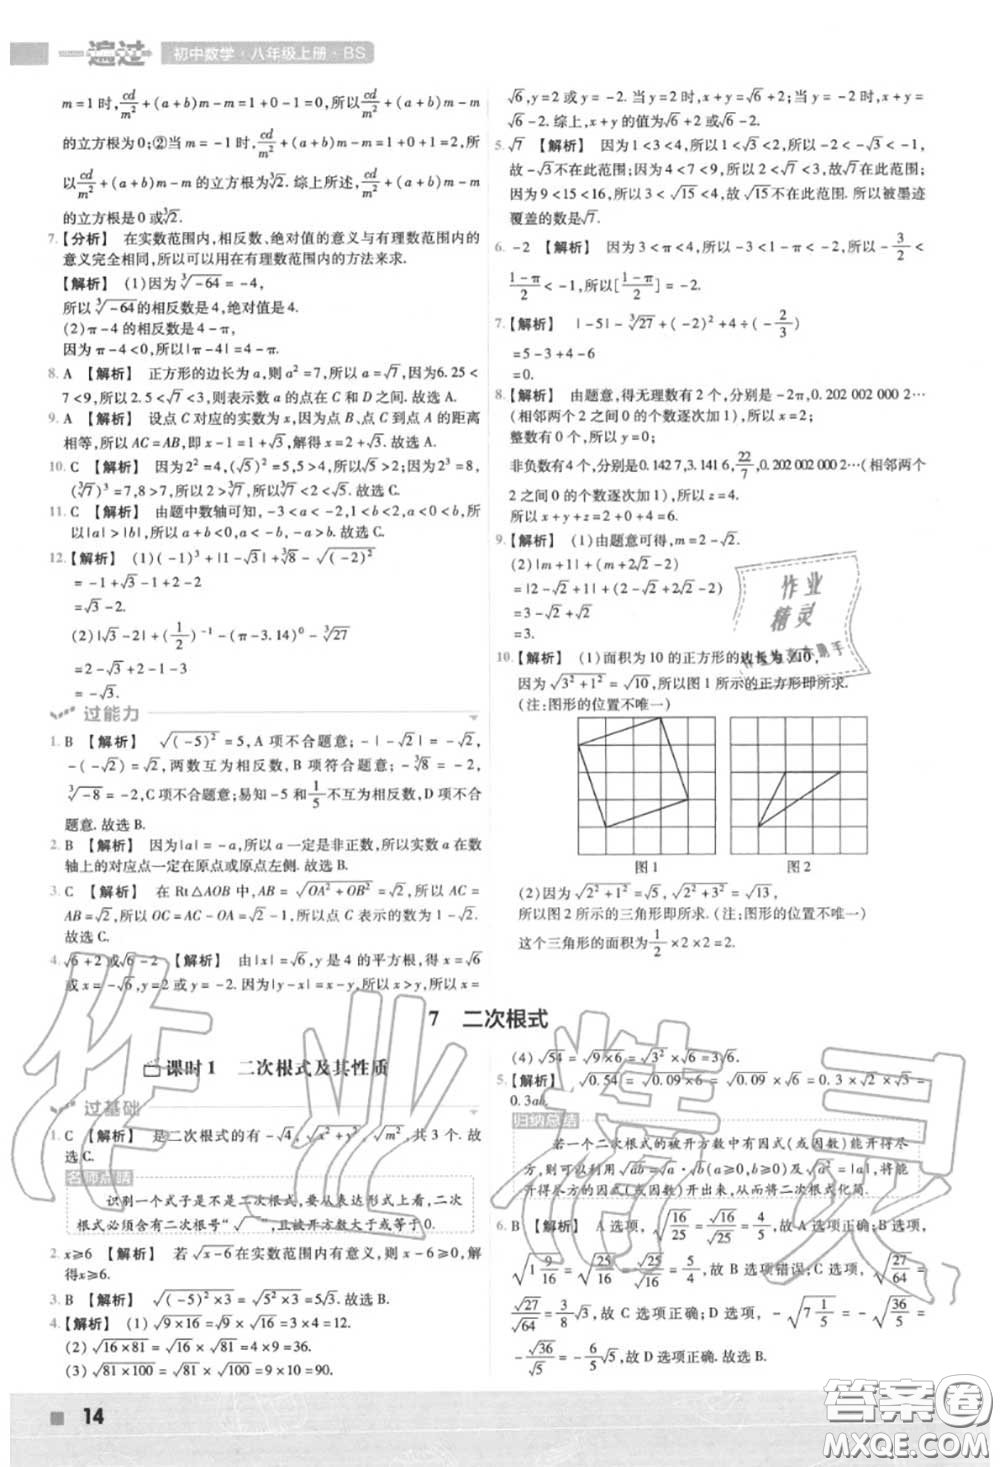 一遍过 初中数学·八年级上册·BS
m=1时,cd/m²+(a+b)m-m=1+0-1=0,所以cd/m²+(a+b)m-m
的立方根为0;②当m=-1时,cd/m²+(a+b)m-m=1+0+1=2,所
以cd/m²+(a+b)m-m的立方根为∛2.综上所述,cd/m²+(a+b)m-m
的立方根是0或∛2.
7.【分析】 在实数范围内,相反数、绝对值的意义与有理数范围内的
意义完全相同,所以可以用在有理数范围内的方法来求.
【解析】 (1)因为∛-64=-4,
所以∛-64的相反数是4,绝对值是4.
(2)π-4的相反数是4-π.
因为π-4<0,所以|π-4|=4-π.
8. A 【解析】 正方形的边长为a,则a²=7,所以a=√7,因为6.25<
7<9,所以2.5<√7<3,则表示数a的点在C和D之间.故选A.
9. A 【解析】 设点C对应的实数为x,因为点B、点C到点A的距离
相等,所以AC=AB,即x-1=1+√3,解得x=2+√3.故选A.
10. C 【解析】 因为2²=4,(√5)²=5,5>4,所以2<√5.因为2³=8,
(∛7)³=7,8>7,所以2>∛7,所以∛7<2<√5.故选C.
11. C 【解析】 由题中数轴可知,-3<a<-2,1<b<2,a<0<b,所
以|a|>|b|,因为a<0,b>0,所以a<-b,-a>b.故选C.
12.【解析】 (1)(-1)³+|1-√3|+∛8-√(-2)²
=-1+√3-1+2-2
=√3-2.
(2)|√3-2|+(1/2)⁻¹-(π-3.14)⁰-∛27
=2-√3+2-1-3
=-√3.
过能力
1. B 【解析】 √(-5)²=5,A项不合题意;-|-√2|=-√2,
-(-√2)=√2,两数互为相反数,B项符合题意;-∛8=-2,
∛-8=-2,C项不合题意;易知-5和1/5不互为相反数,D项不合
题意.故选B.
2. B 【解析】 因为|a|=-a,所以a一定是非正数,所以实数a在数
轴上的对应点一定在原点或原点左侧.故选B.
3. C 【解析】 在Rt△AOB中,AB=√OA²+OB²=√2,所以AC=
AB=√2,所以OC=AC-OA=√2-1,所以点C表示的数为√2-1.
故选C.
4. √6+2或√6-2 【解析】 由|x|=√6,y是4的平方根,得x=√6
或x=-√6,y=2或y=-2.因为|y-x|=x-y,所以x>y,所以x=
√6,y=2或y=-2.当y=2时,x+y=√6+2;当y=-2时,x+y=
√6-2.综上,x+y的值为√6+2或√6-2.
5. √7 【解析】 因为1<3<4,所以1<√3<2,所以-2<-√3<-1,
故-√3不在此范围;因为4<7<9,所以2<√7<3,故√7在此范围;
因为9<15<16,所以3<√15<4,故√15不在此范围.所以被墨迹
覆盖的数是√7.
6. -2 【解析】 因为3<π<4,所以-3<1-π<-2,所以-3/2<
(1-π)/2<-1,所以[(1-π)/2]=-2.
7.【解析】 |-5|-∛27+(-2)²+4÷(-2/3)
=5-3+4-6
=0.
8.【解析】 由题意,得无理数有2个,分别是-2π,0.202 002 000 2…
(相邻两个2之间0的个数逐次加1),所以x=2;
整数有0个,所以y=0;
非负数有4个,分别是0.142 7,3.141 6,22/7,0.202 002 000 2…(相邻两个
2之间0的个数逐次加1),所以z=4.
所以x+y+z=2+0+4=6.
9.【解析】 (1)由题意可得,m=2-√2.
(2)|m+1|+(m+2√2-2)
=|2-√2+1|+(2-√2+2√2-2)
=3-√2+√2
=3.
10.【解析】 (1)面积为10的正方形的边长为√10,
因为√3²+1²=√10,所以图1所示的正方形即所求.
(注:图形的位置不唯一)
图1 图2
(2)因为√2²+1²=√5,√2²+3²=√13,
所以图2所示的三角形即所求.(注:图形的位置不唯一)
这个三角形的面积为1/2×2×2=2.
7 二次根式
课时1 二次根式及其性质
过基础
1. C 【解析】 是二次根式的有-√4,√x²+y²,√m²,共3个.故
选C.
名师点睛
识别一个式子是不是二次根式,要从表达形式上看,二次
根式必须含有二次根号“√ ”,且被开方数大于或等于0.
2. x≥6 【解析】 若√x-6在实数范围内有意义,则x-6≥0,解
得x≥6.
3. B 【解析】 √(-5)²×3=√5²×3=5√3.故选B.
4.【解析】 (1)√9×16=√9×√16=3×4=12.
(2)√16×81=√16×√81=4×9=36.
(3)√81×100=√81×√100=9×10=90.
(4)√54=√9×6=√3²×√6=3√6.
5.【解析】
0.3ab.
归纳总结
若一个二次根式的被开方数中有因式(或因数)能开得尽
方,则可以利用√ab=√a·√b(a≥0,b≥0)及√a²=|a|,将能
开得尽方的因式(或因数)开出来,从而将二次根式化简.
6. B 【解析】 A选项,√16/25=√16/√25=4/5,故A选项正确;B选项,
√1 9/16=√25/16=√25/√16=5/4,故B选项错误;C选项,√27/64=
√27/√64=3/8√3,故C选项正确;D选项,-√7 1/5=-√36/5=
-√36/√5=-6/5√5,故D选项正确.故选B.
14
作业精灵
作业精灵
答案卷
MXQE.COM